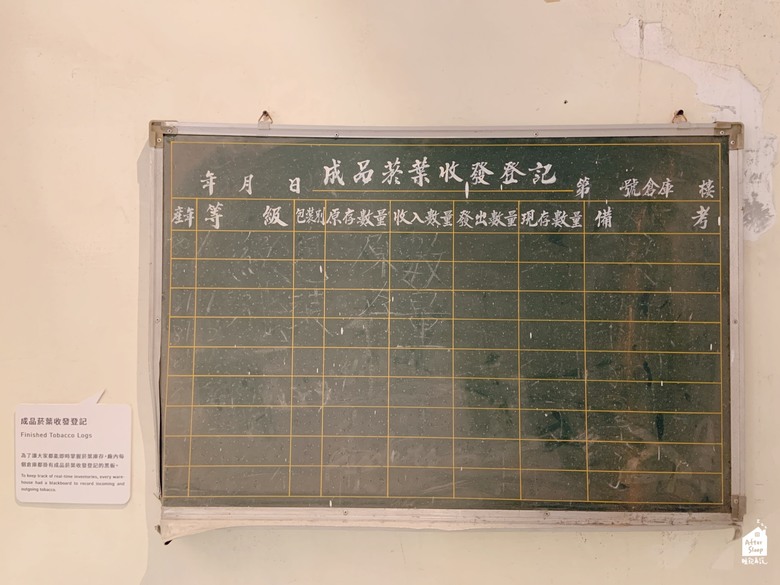 成品菸葉收發登記
年 月 日 第 號倉庫 樓
產年 等 級 包裝別 原存數量 收入數量 發出數量 現存數量 備 考
成品菸葉收發登記
Finished Tobacco Logs
為了讓大家都能即時掌握菸葉庫存，廠內每
個倉庫都掛有成品菸葉收發登記的黑板。
To keep track of real-time inventories, every ware
house had a blackboard to record incoming and
outgoing tobacco.
After
Sleep
睡飽再說